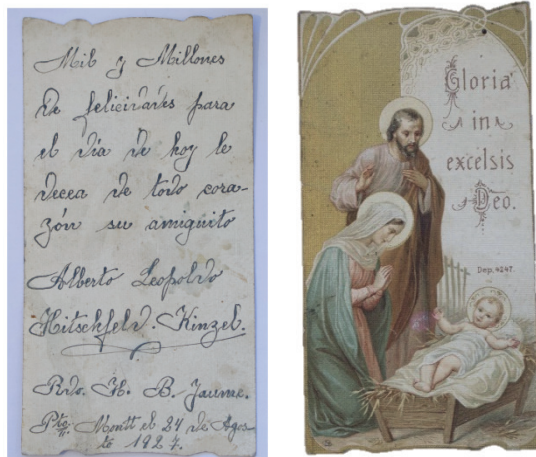 Mil y Millones
de felicidades para
el dia de hoy le
decea de todo cora-
zón su amiguito
Alberto Leopoldo
Hitschfeld. Kinzel.
Rdo. H. B.
Pto. Montt el 24 de Agos-
to 1927.
Gloria
in
excelsis
Deo.
Dep. 4247.